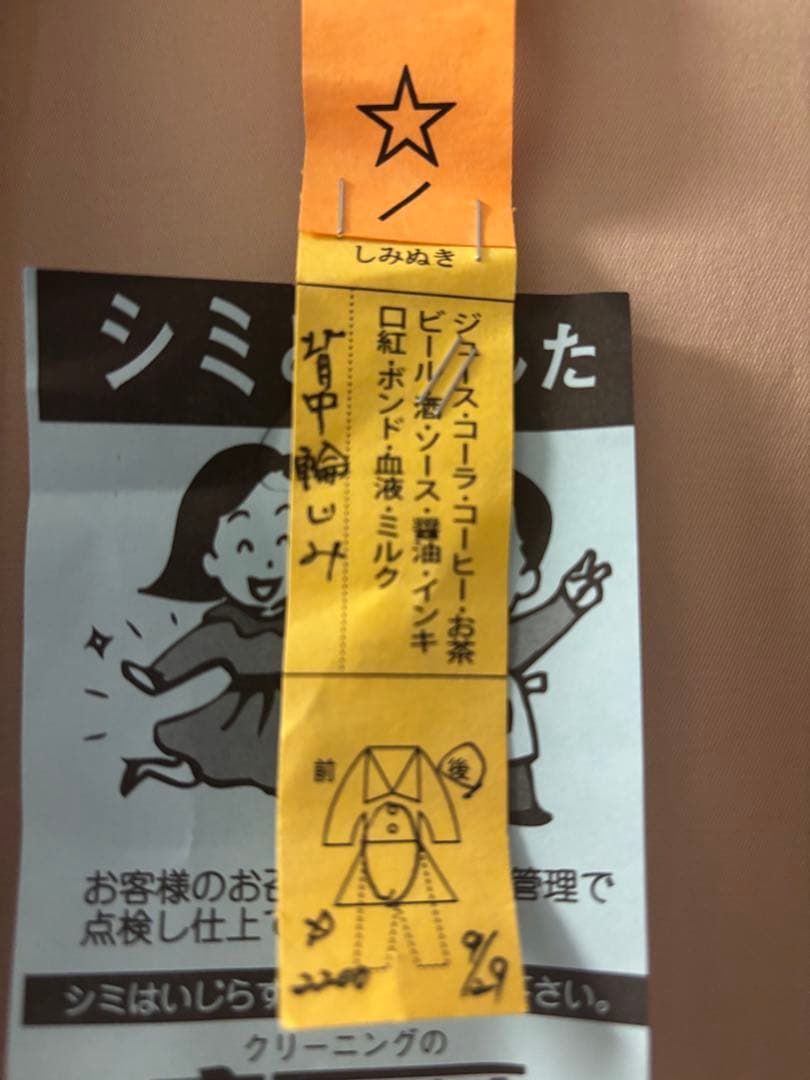 ☆
しみぬき
ジュース・コーラ・コーヒー・お茶
ビール・酒・ソース・醤油・インキ
口紅・ボンド・血液・ミルク
背中輪じみ
前
後
2200
9/29
シミ
した
お客様のお召
管理で
点検し仕上
シミはいじらず
ださい。
クリーニングの